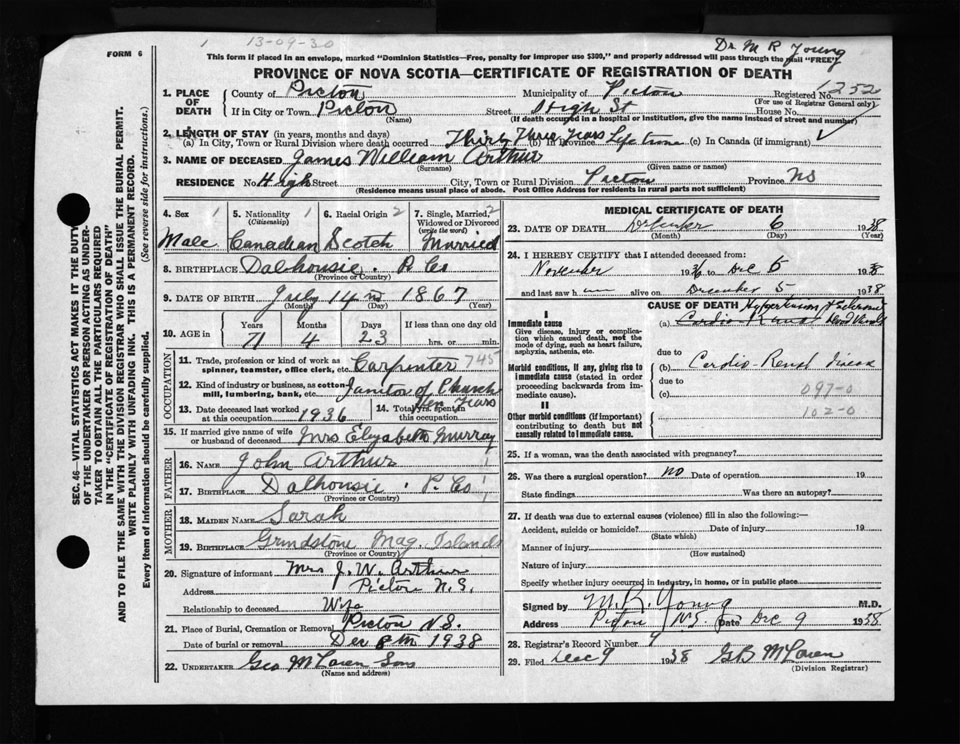 FORM 6
1 13-09-30
Dr. M R Young
This form if placed in an envelope, marked "Dominion Statistics—Free, penalty for improper use $300," and properly addressed will pass through the mail "FREE"
PROVINCE OF NOVA SCOTIA—CERTIFICATE OF REGISTRATION OF DEATH
1. PLACE OF DEATH
County of Pictou Municipality of Pictou Registered No. 1252
(For use of Registrar General only)
If in City or Town Pictou Street High St House No.
(Name) (If death occurred in a hospital or institution, give the name instead of street and number)
2. LENGTH OF STAY (in years, months and days)
(a) In City, Town or Rural Division where death occurred Thirty Three Years (b) In Province Life time (c) In Canada (if immigrant)
3. NAME OF DECEASED James William Arthur
(Surname) (Given name or names)
RESIDENCE No. High Street City, Town or Rural Division Pictou Province NS
(Residence means usual place of abode. Post Office Address for residents in rural parts not sufficient)
4. Sex 1 5. Nationality 1 6. Racial Origin 2 7. Single, Married, 2
(Citizenship) Widowed or Divorced
(write the word)
Male Canadian Scotch Married
8. BIRTHPLACE Dalhousie . P. Co
(Province or Country)
9. DATE OF BIRTH July 14 1867
(Month) (Day) (Year)
10. AGE in Years Months Days If less than one day old
71 4 23 hrs. or min.
OCCUPATION
11. Trade, profession or kind of work as spinner, teamster, office clerk, etc. Carpenter 745
12. Kind of industry or business, as cotton-mill, lumbering, bank, etc. Janitor of P. Church
13. Date deceased last worked at this occupation 1936 14. Total yrs. spent in this occupation Ten Years
15. If married give name of wife or husband of deceased Mrs Elizabeth Murray
FATHER
16. NAME John Arthur
17. BIRTHPLACE Dalhousie . P. Co
(Province or Country)
MOTHER
18. MAIDEN NAME Sarah
19. BIRTHPLACE Grindstone Mag. Islands
(Province or Country)
20. Signature of informant Mrs J. W. Arthur
Address Pictou N.S.
Relationship to deceased Wife
21. Place of Burial, Cremation or Removal Pictou N.S.
Date of burial or removal Dec 8th 1938
22. UNDERTAKER Geo McLaren Sons
(Name and address)
MEDICAL CERTIFICATE OF DEATH
23. DATE OF DEATH December 6 1938
(Month) (Day) (Year)
24. I HEREBY CERTIFY that I attended deceased from:
November 193 to Dec 5 1938
and last saw h im alive on December 5 1938
CAUSE OF DEATH
I
Immediate cause
Give disease, injury or complication which caused death, not the mode of dying, such as heart failure, asphyxia, asthenia, etc.
(a)
due to
Morbid conditions, if any, giving rise to immediate cause (stated in order proceeding backwards from immediate cause).
(b) Cardio-Renal Disease
due to
(c) 097-0
II
Other morbid conditions (if important) contributing to death but not causally related to immediate cause.
102-0
25. If a woman, was the death associated with pregnancy?
26. Was there a surgical operation? NO Date of operation 19
State findings Was there an autopsy?
27. If death was due to external causes (violence) fill in also the following:—
Accident, suicide or homicide? Date of injury 19
(State which)
Manner of injury
(How sustained)
Nature of injury
Specify whether injury occurred in industry, in home, or in public place
Signed by M. R. Young M.D.
Address Pictou N.S. Date Dec 9 1938
28. Registrar's Record Number 9
29. Filed Dec 9 1938 GB McLaren
(Division Registrar)
SEC. 46—VITAL STATISTICS ACT MAKES IT THE DUTY
OF THE UNDERTAKER OR PERSON ACTING AS UNDER-
TAKER TO OBTAIN ALL THE PARTICULARS REQUIRED
IN THE "CERTIFICATE OF REGISTRATION OF DEATH"
AND TO FILE THE SAME WITH THE DIVISION REGISTRAR WHO SHALL ISSUE THE BURIAL PERMIT.
WRITE PLAINLY WITH UNFADING INK. THIS IS A PERMANENT RECORD.
Every item of information should be carefully supplied. (See reverse side for instructions.)